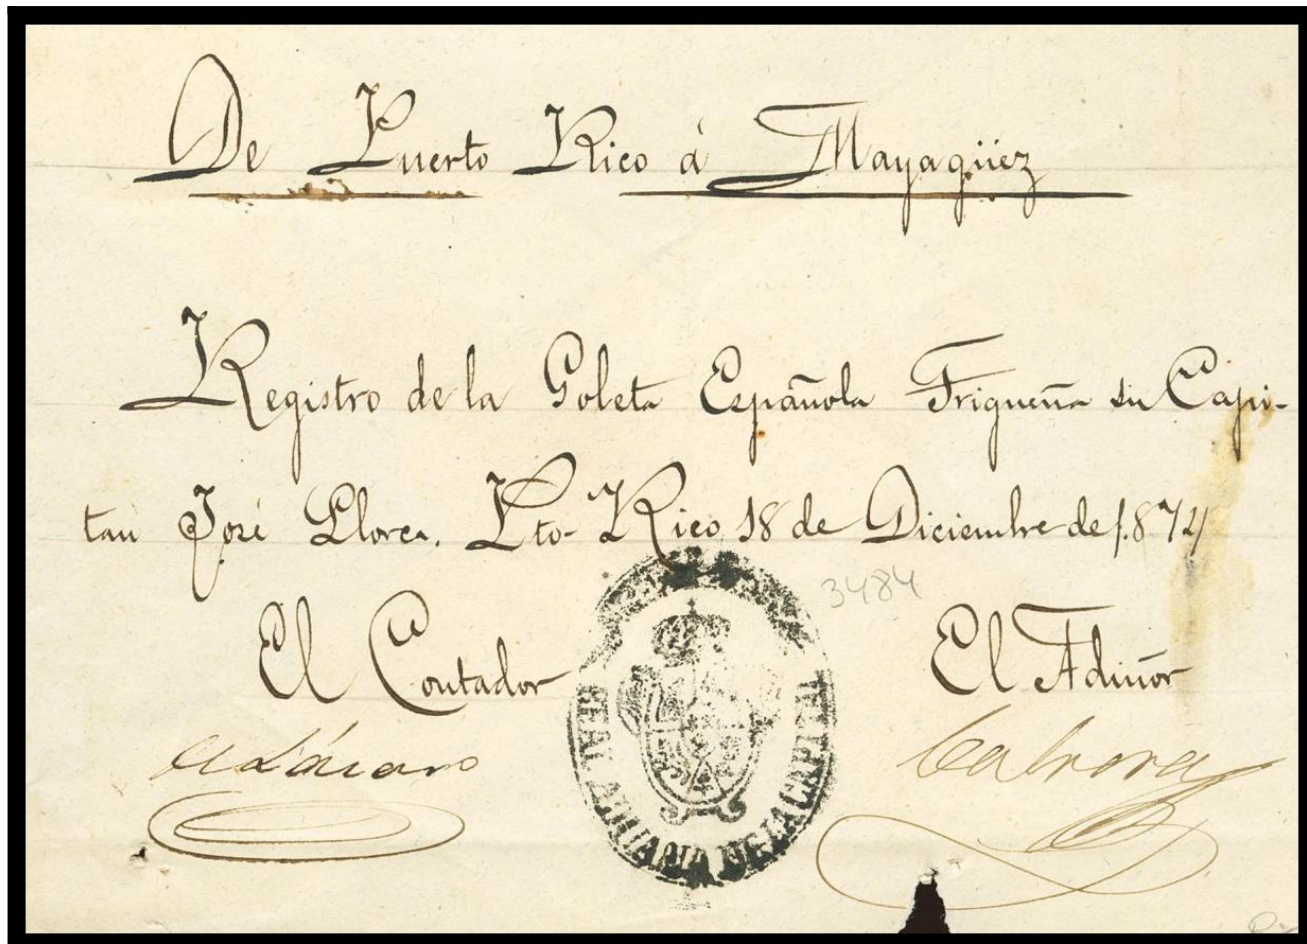 De Puerto Rico á Mayagüez
Registro de la Goleta Española Trigueña su Capi-
tan José Llorca. Pto- Rico 18 de Diciembre de 1.874
3484
El Contador
El Admor
REAL ADUANA DE LA CAPITAL
Cabrera